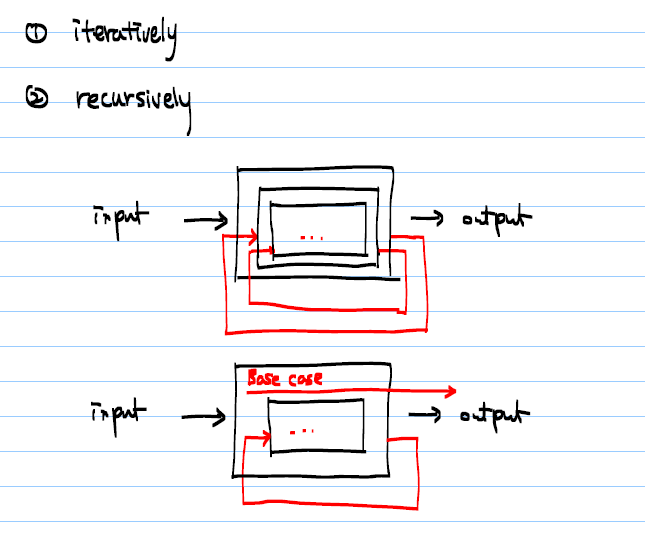 ① iteratively
② recursively
input → ... → output
Base case
input → ... → output